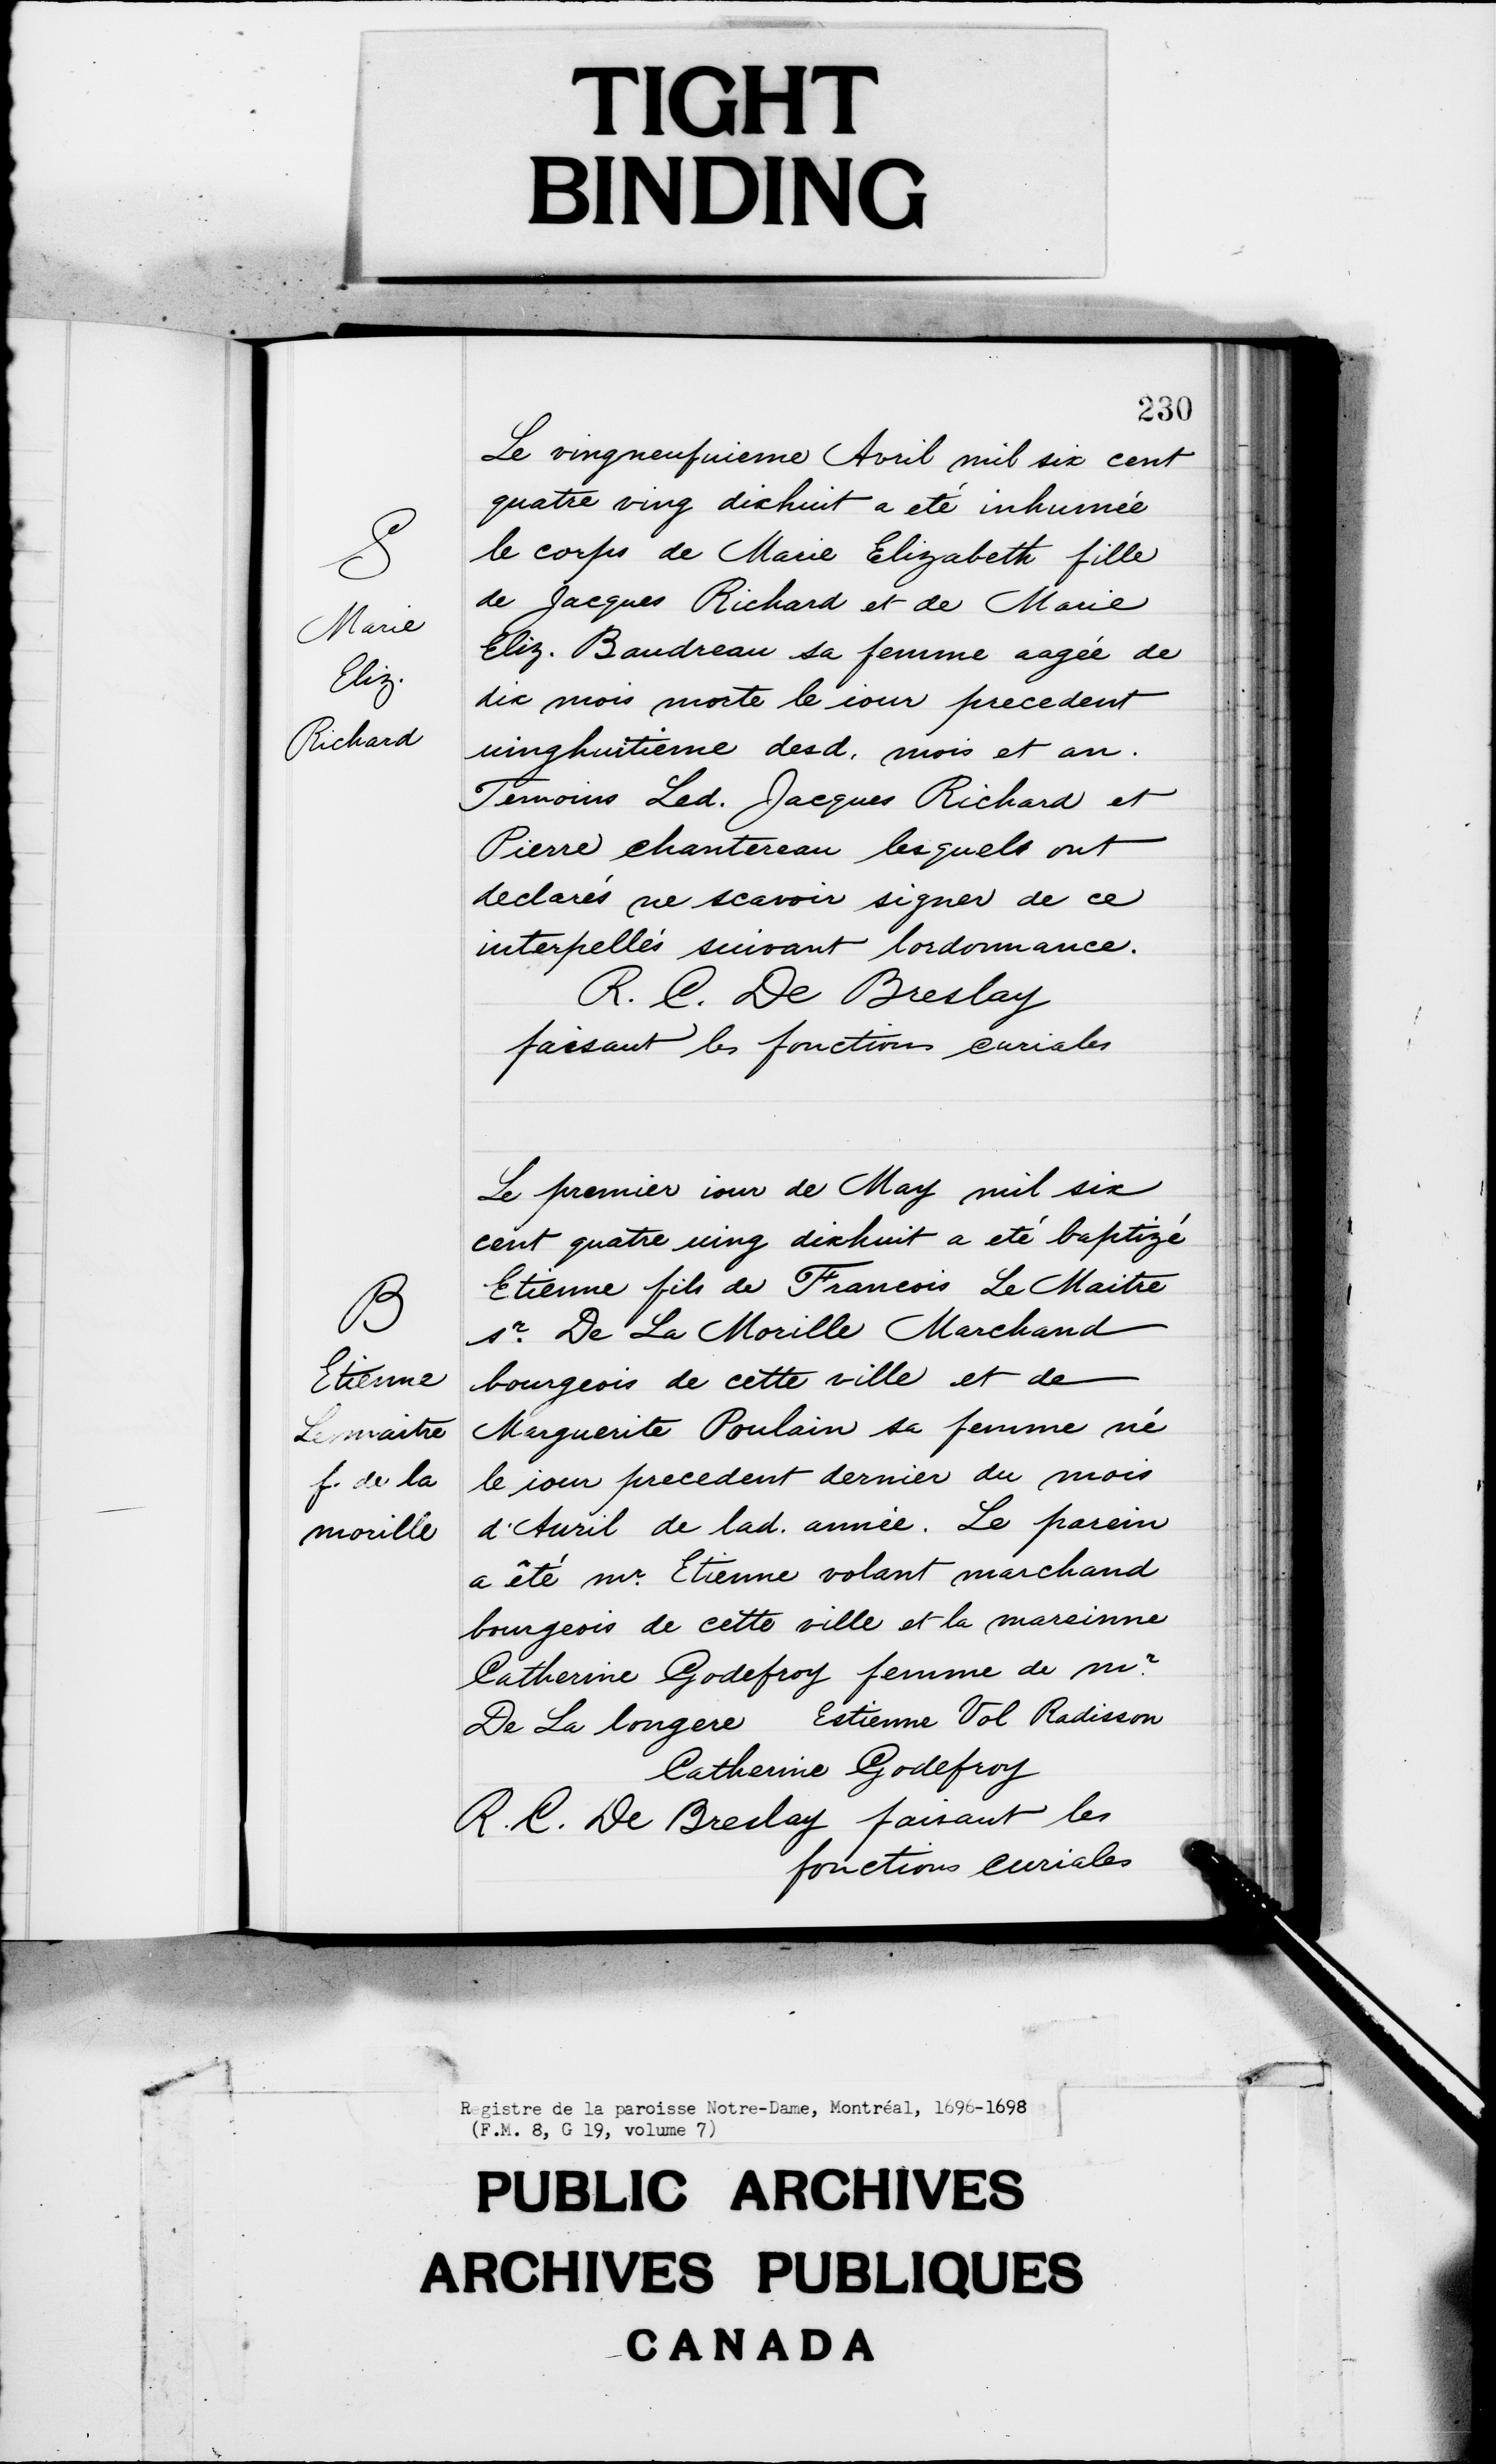 TIGHT
BINDING
230
Le vingneufuieme Avril mil six cent
quatre ving dixhuit a eté inhumée
S
le corps de Marie Elizabeth fille
de Jacques Richard et de Marie
Marie
Eliz. Baudreau sa femme aagée de
Eliz.
dix mois morte le iour precedent
Richard
uinghuitieme desd. mois et an.
Temoins Led. Jacques Richard et
Pierre chantereau lesquels ont
declarés ne scavoir signer de ce
interpellés suivant lordonnance.
R. C. De Breslay
faisant les fonctions curiales
Le premier iour de May mil six
cent quatre uing dixhuit a eté baptizé
Etienne fils de Francois Le Maitre
B
sr. De La Morille Marchand
Etienne
bourgeois de cette ville et de
Lemaitre
Marguerite Poulain sa femme né
f. de la
le iour precedent dernier du mois
morille
d'Auril de lad. année. Le parein
a êté mr. Etienne volant marchand
bourgeois de cette ville et la mareinne
Catherine Godefroy femme de mr.
De La longere Estienne Vol Radisson
Catherine Godefroy
R. C. De Breslay faisant les
fonctions curiales
Registre de la paroisse Notre-Dame, Montréal, 1696-1698
(F.M. 8, G 19, volume 7)
PUBLIC ARCHIVES
ARCHIVES PUBLIQUES
CANADA